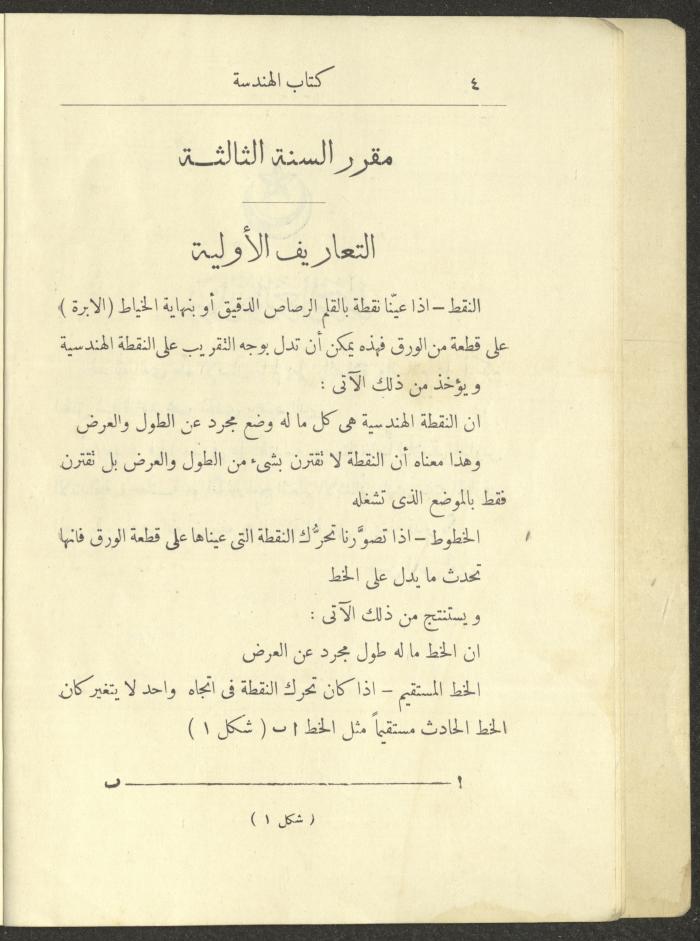 ٤
كتاب الهندسة
مقرر السنة الثالثــة
التعاريف الأولية
النقط – اذا عيّنا نقطة بالقلم الرصاص الدقيق أو بنهاية الخياط (الابرة)
على قطعة من الورق فهذه يمكن أن تدل بوجه التقريب على النقطة الهندسية
ويؤخذ من ذلك الآتى :
ان النقطة الهندسية هى كل ما له وضع مجرد عن الطول والعرض
وهذا معناه أن النقطة لا تقترن بشىء من الطول والعرض بل تقترن
فقط بالموضع الذى تشغله
الخطوط – اذا تصوَّرنا تحرُّك النقطة التى عيناها على قطعة الورق فانها
تحدث ما يدل على الخط
ويستنتج من ذلك الآتى :
ان الخط ما له طول مجرد عن العرض
الخط المستقيم – اذا كان تحرك النقطة فى اتجاه واحد لا يتغير كان
الخط الحادث مستقيماً مثل الخط ا ب ( شكل ١ )
ا ب
( شكل ١ )